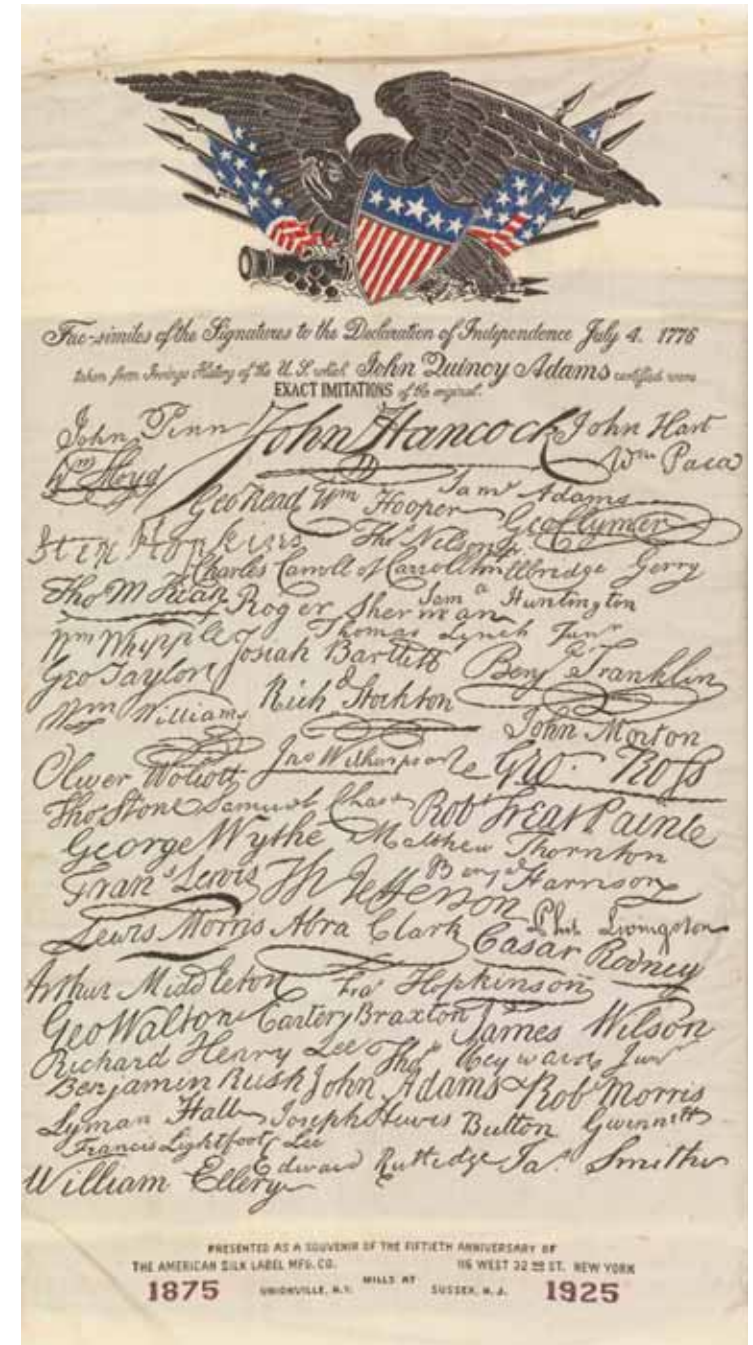 Fac-similes of the Signatures to the Declaration of Independence July 4. 1776
taken from Irvings History of the U.S. which John Quincy Adams certified were
EXACT IMITATIONS of the original.
John Penn John Hancock John Hart
Wm Floyd Wm Paca
Geo Read Wm Hooper Saml Adams
Geo Clymer
Step Hopkins Thos Nelson jr.
Charles Carroll of Carrollton Elbridge Gerry
Tho M Kean Roger Sherman Saml Huntington
Wm Whipple Josiah Bartlett Thomas Lynch Junr
Geo Taylor Benj Franklin
Wm Williams Richd Stockton
John Morton
Oliver Wolcott Jno Witherspoon Geo. Ross
Thos Stone Samuel Chase Robt Treat Paine
George Wythe Matthew Thornton
Frans Lewis Th Jefferson Benj Harrison
Lewis Morris Abra Clark Phil. Livingston
Casar Rodney
Arthur Middleton Fras Hopkinson
Geo Walton Carter Braxton James Wilson
Richard Henry Lee Thos Heyward Junr
Benjamin Rush John Adams Robt Morris
Lyman Hall Joseph Hewes Button Gwinnett
Francis Lightfoot Lee
William Ellery Edward Rutledge Jas. Smith
PRESENTED AS A SOUVENIR OF THE FIFTIETH ANNIVERSARY OF
THE AMERICAN SILK LABEL MFG. CO. 116 WEST 32ND ST. NEW YORK
1875 UNIONVILLE, N.Y. MILLS AT SUSSEX, N.J. 1925